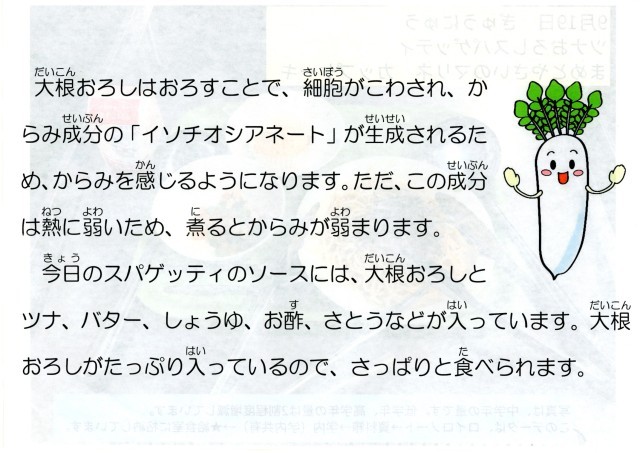 大根おろしはおろすことで、細胞がこわされ、か
らみ成分の「イソチオシアネート」が生成されるた
め、からみを感じるようになります。ただ、この成分
は熱に弱いため、煮るとからみが弱まります。
今日のスパゲッティのソースには、大根おろしと
ツナ、バター、しょうゆ、お酢、さとうなどが入っています。大根
おろしがたっぷり入っているので、さっぱりと食べられます。